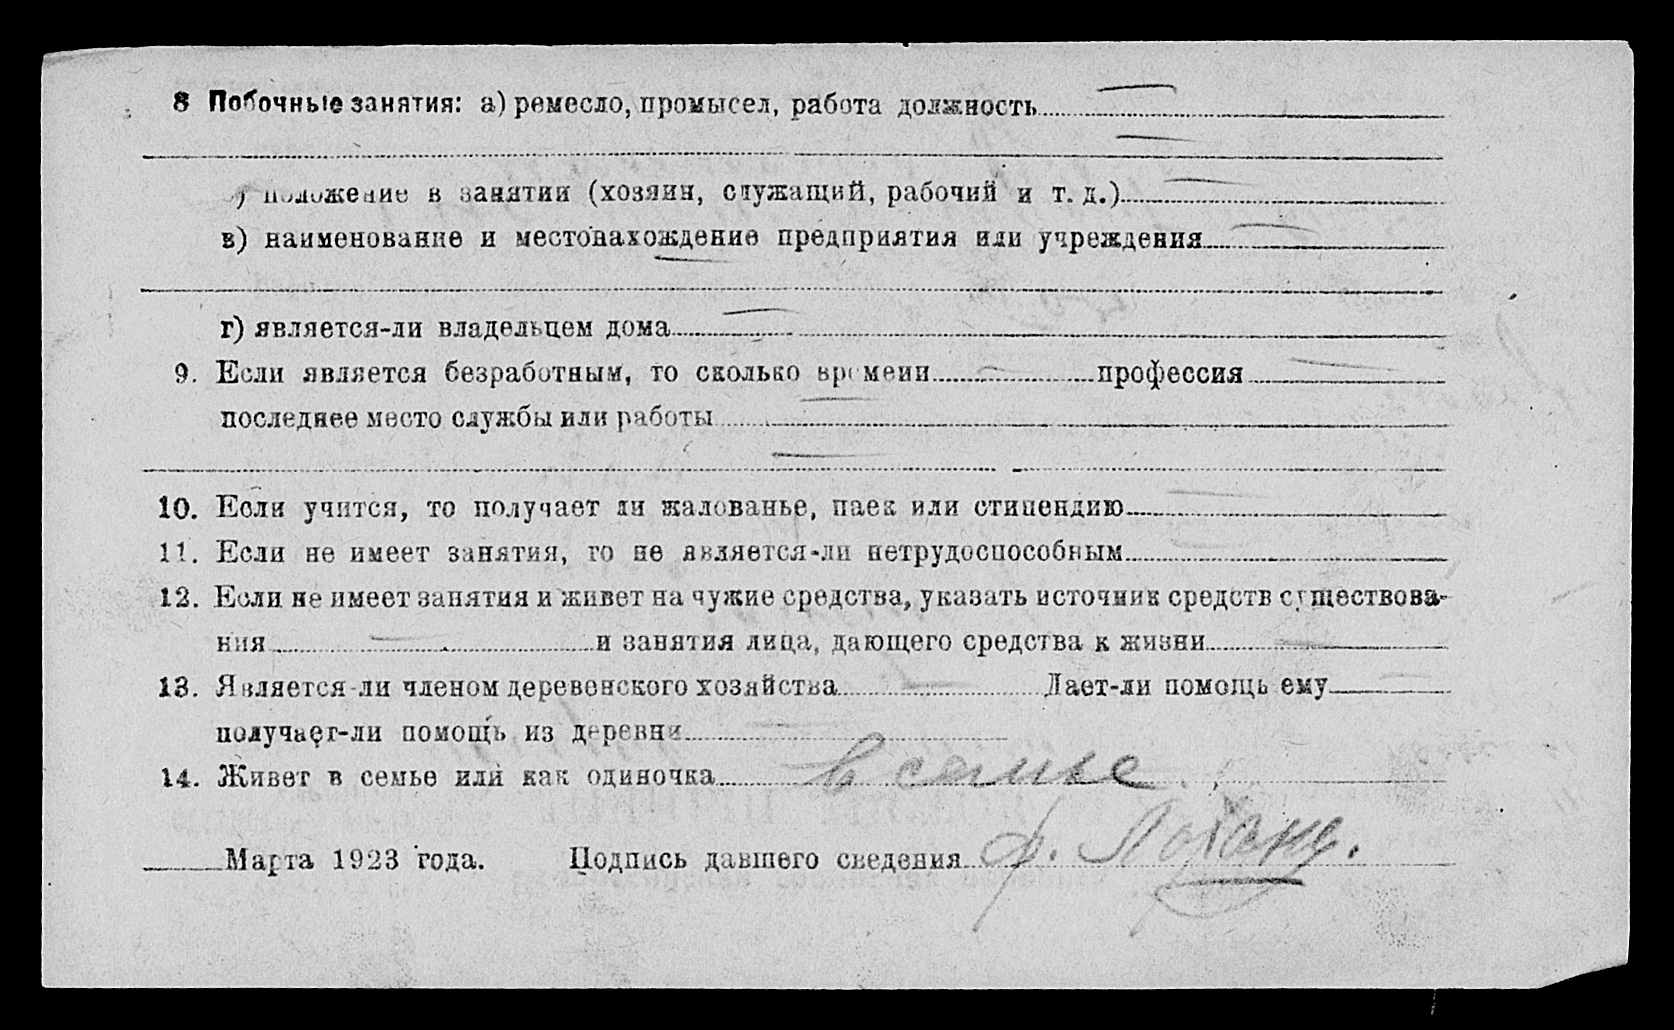 8 Побочные занятия: а) ремесло, промысел, работа должность
) положение в занятии (хозяин, служащий, рабочий и т. д.)
в) наименование и местонахождение предприятия или учреждения
г) является-ли владельцем дома
9. Если является безработным, то сколько времени профессия
последнее место службы или работы
10. Если учится, то получает ли жалованье, паек или стипендию
11. Если не имеет занятия, то не является-ли нетрудоспособным
12. Если не имеет занятия и живет на чужие средства, указать источник средств существова-
ния и занятия лица, дающего средства к жизни
13. Является-ли членом деревенского хозяйства Дает-ли помощь ему
получает-ли помощь из деревни
14. Живет в семье или как одиночка в семье
Марта 1923 года. Подпись давшего сведения Ф.